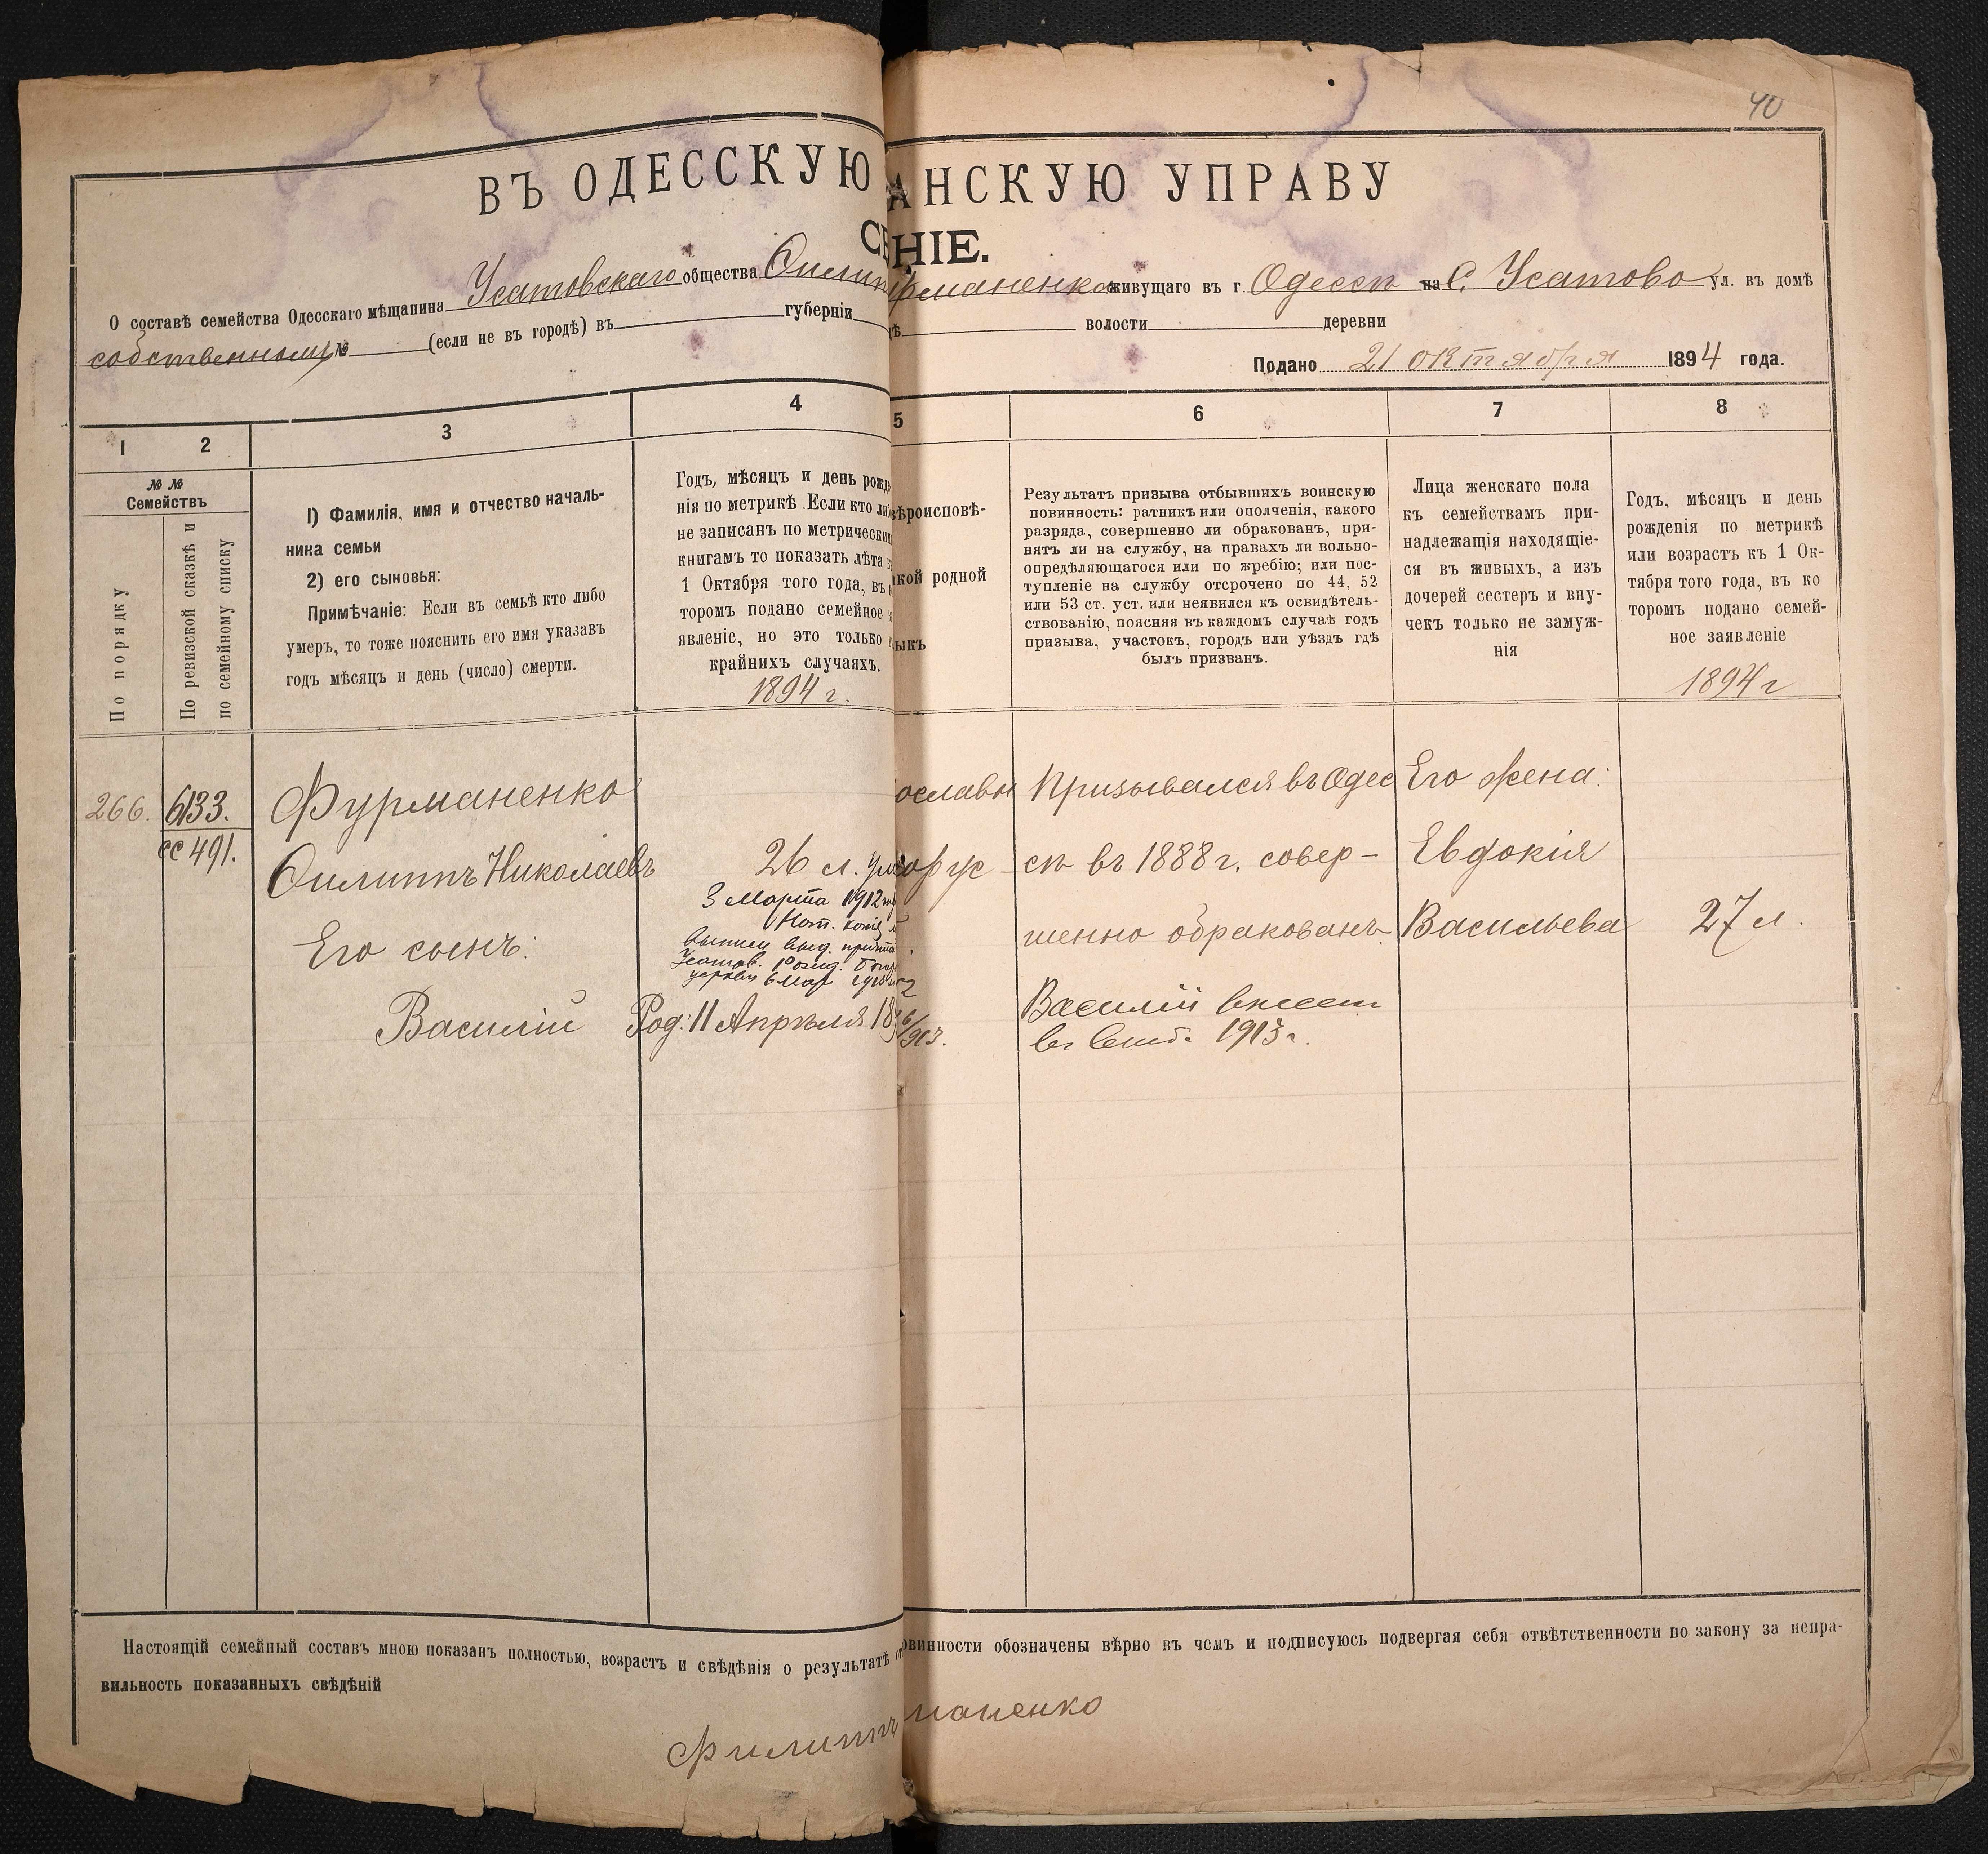 40
ВЪ ОДЕССКУЮ АНСКУЮ УПРАВУ
НІЕ.
О составѣ семейства Одесскаго мѣщанина Усатовскаго общества Ѳилип рманенко живущаго въ г. Одессѣ на С. Усатово ул. въ домѣ
собственномъ № (если не въ городѣ) въ губерніи волости деревни
Подано 21 октября 1894 года.
1 2 3 4 5 6 7 8
№ №
Семействъ
По порядку
По ревизской сказкѣ и
по семейному списку
1) Фамилія, имя и отчество началь-
ника семьи
2) его сыновья:
Примѣчаніе: Если въ семьѣ кто либо
умеръ, то тоже пояснить его имя указавъ
годъ мѣсяцъ и день (число) смерти.
Годъ, мѣсяцъ и день рожде
нія по метрикѣ. Если кто ли
не записанъ по метрически
книгамъ то показать лѣта к
1 Октября того года, въ
торомъ подано семейное з
явленіе, но это только
крайнихъ случаяхъ.
1894 г.
вѣроисповѣ-
кой родной
ыкъ
Результатъ призыва отбывшихъ воинскую
повинность: ратникъ или ополченія, какого
разряда, совершенно ли обракованъ, при-
нятъ ли на службу, на правахъ ли вольно-
опредѣляющагося или по жребію; или пос-
тупленіе на службу отсрочено по 44, 52
или 53 ст. уст. или неявился къ освидѣтель-
ствованію, поясняя въ каждомъ случаѣ годъ
призыва, участокъ, городъ или уѣздъ гдѣ
былъ призванъ.
Лица женскаго пола
къ семействамъ при-
надлежащія находящіе-
ся въ живыхъ, а изъ
дочерей сестеръ и вну-
чекъ только не замуж-
нія
Годъ, мѣсяцъ и день
рожденія по метрикѣ
или возрастъ къ 1 Ок-
тября того года, въ ко
торомъ подано семей-
ное заявленіе
1894 г
266. 6133. Фурманенко ославн Призывался въ Одес Его жена:
сс 491.
Ѳилиппъ Николаевъ 26 л. ум рус сѣ въ 1888 г. совер- Евдокія
3 Марта 1912
Нот. копія
Его сынъ: шенно обракованъ. Васильева 27 л.
церкви 6 Мар
Василій Род: 11 Апрѣля 18
Василій внесет
1913 г.
Настоящій семейный составъ мною показанъ полностью, возрастъ и свѣдѣнія о результатѣ от овинности обозначены вѣрно въ чемъ и подписуюсь подвергая себя отвѣтственности по закону за непра-
вильность показанныхъ свѣдѣній
Филиппъ маненко